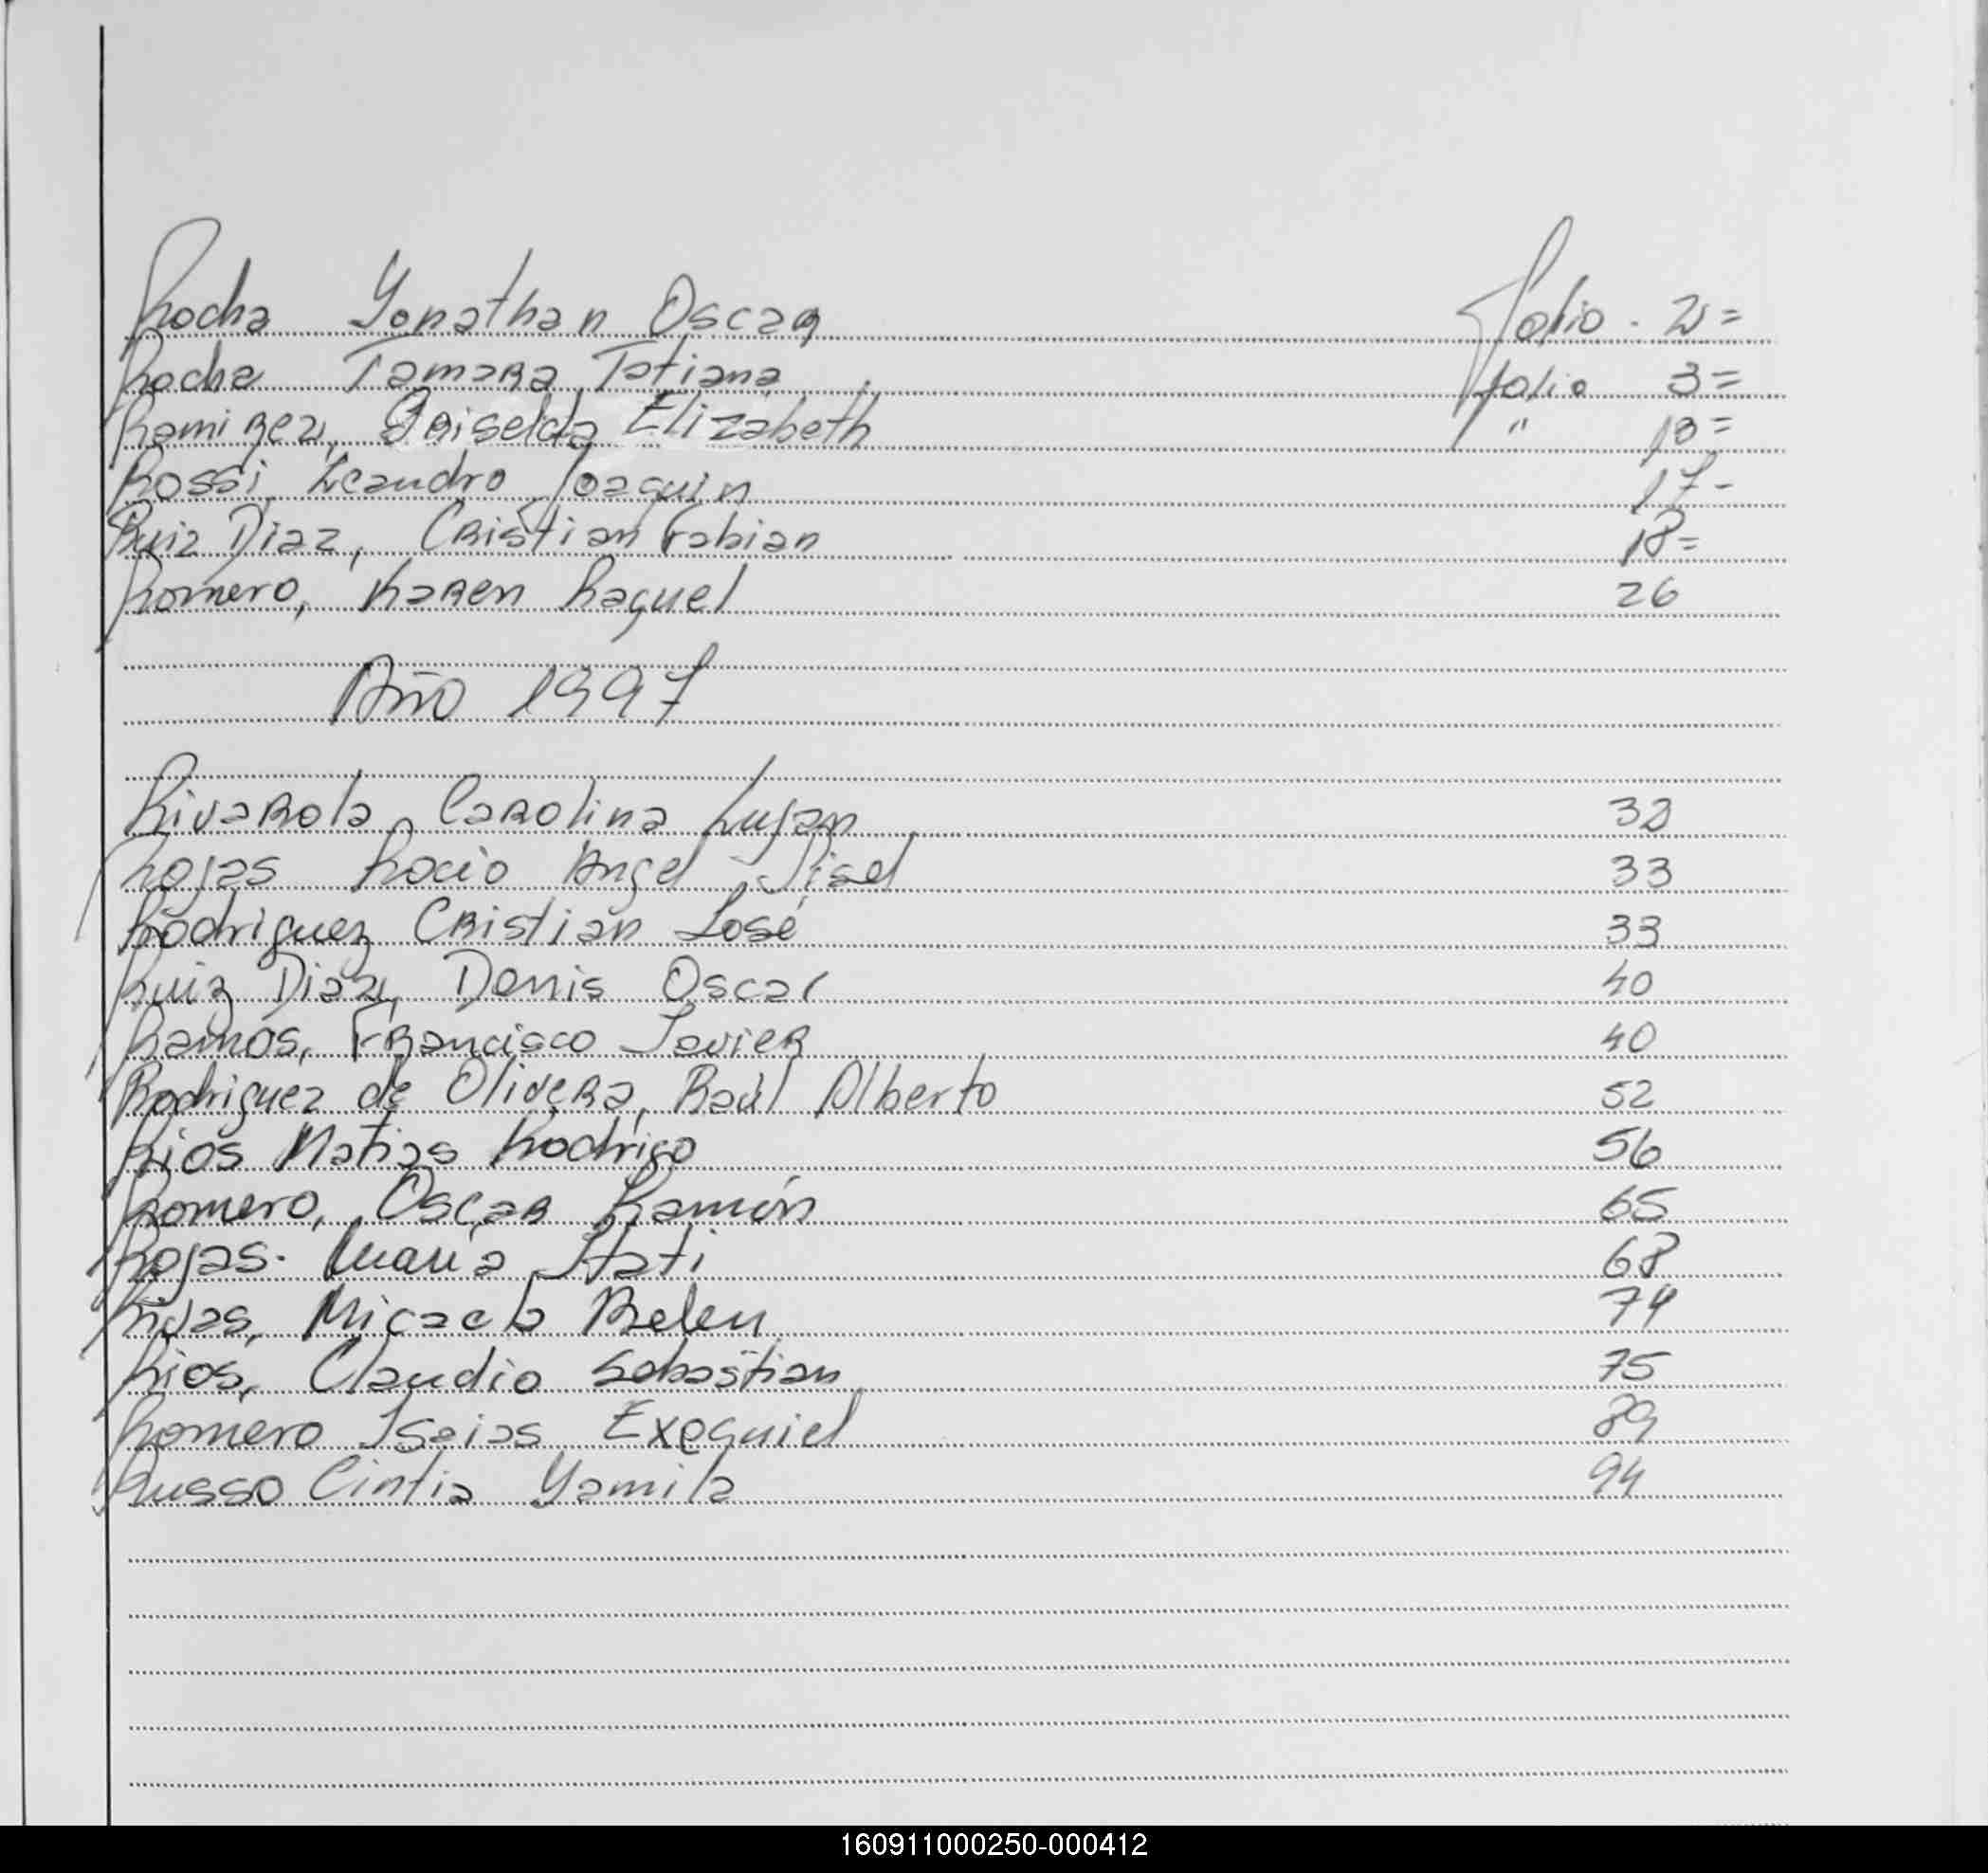 Rocha Yonathan Oscar Folio - 2=
Rocha Tamara Tatiana folio 3=
Ramirez, Griselda Elizabeth " 13=
Rossi, Leandro Joaquin 17-
Ruiz Diaz, Cristian Fabian 18=
Romero, Karen Raquel 26
Año 1997
Rivarola Carolina Lujan 32
Rojas Rocio Angel 33
Rodriguez Cristian José 33
Ruiz Diaz, Denis Oscar 40
Ramos, Francisco Javier 40
Rodriguez de Olivera, Raúl Alberto 52
Rios Matias Rodrigo 56
Romero, Oscar Ramón 65
Rojas. Maria Itati 68
Rivas, Micaela Belen 74
Rios, Claudio Sebastian 75
Romero Isaias Exequiel 89
Russo Cintia Yamila 94
160911000250-000412